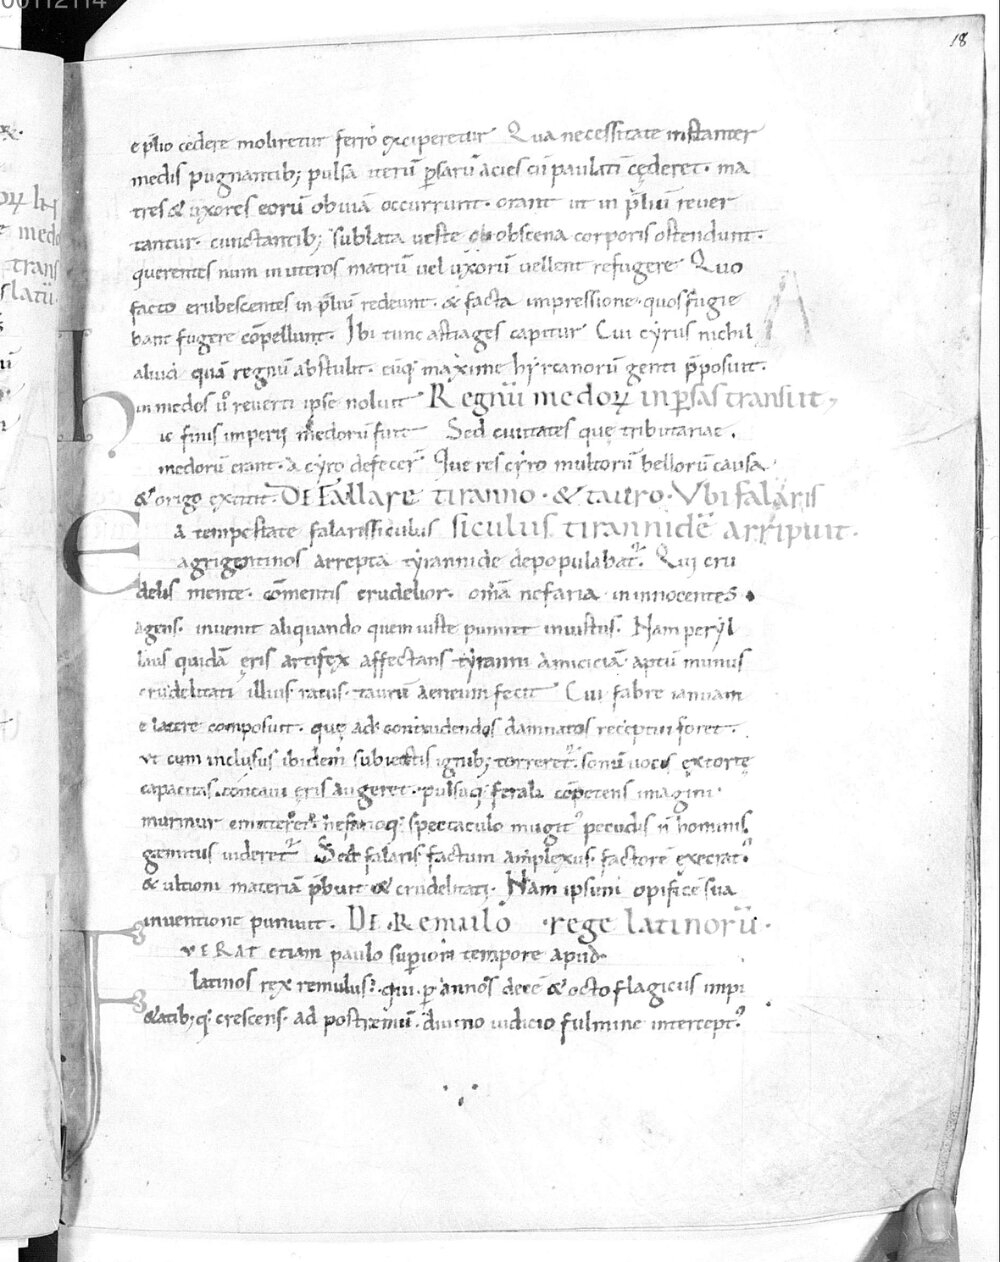 00112114
18
e p̄lio cedere moliretur ferro exciperetur Qua necessitate instanter
medis pugnantib; pulsa iterū persarū acies cū paulatī cęderet. ma
tres & uxores eorū obuiā occurrunt. orant ut in p̄liū reuer
tantur. cunctantib; sublata ueste obscena corporis ostendunt.
querentes num in uteros matrū uel uxorū uellent refugere Quo
facto erubescentes in p̄liū redeunt. & facta impressione. quos fugie
bant fugere cōpellunt. Ibi tunc astiages capitur Cui cyrus nichil
aliud quā regnū abstulit. eūq; maxime hyrcanorū genti p̄posuit.
in medos u° reuerti ipse noluit Regnū medoꝝ in persas transiit,
hic finis imperij medorū fuit Sed ciuitates quę tributariae.
medorū erant. a cyro defecer̄ Que res cyro multorū bellorū causa
& origo extitit. DE Fallare tiranno. & tauro. Vbi falaris
Ea tempestate falaris siculus siculus tirannidē arripuit.
agrigentinos arrepta tyrannide depopulabat². Qui cru
delis mente. cōmentis crudelior. omīa nefaria in innocentes
agens. inuenit aliquando quem iuste puniret iniustus. Nam peryl
laus quidā ęris artifex affectans tyranni amiciciā. aptū munus
crudelitati illius ratus. taurū aeneum fecit Cui fabre ianuam
e latere composuit. quę ad contrudendos damnatos receptui foret.
ut cum inclusus ibidem subiectis ignib; torreret². sonū uocis extortę
capacitas. concaui ęris augeret. pulsuq; ferali cōpetens imagini.
murmur emitteret². nefarioq; spectaculo mugit² pecudis ñ hominis
gemitus uideret² Sed falaris factum amplexus. factorē execrat².
& ultioni materiā p̄buit & crudelitati. Nam ipsum opificē sua
inuentione puniuit. DE Remulo rege latinorū.
FVERAT etiam paulo superiori tempore apud
latinos rex remulus. qui per annos decē & octo flagicus impi
&atib;q; crescens. ad postremū. diuino iudicio fulmine intercept²